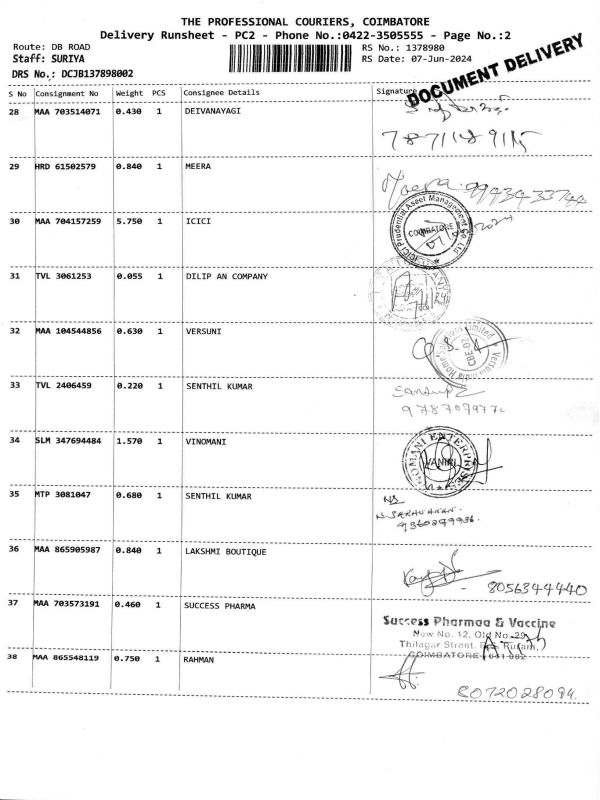 THE PROFESSIONAL COURIERS, COIMBATORE
Delivery Runsheet - PC2 - Phone No.:0422-3505555 - Page No.:2
Route: DB ROAD
Staff: SURIYA
DRS No.: DCJB137898002
RS No.: 1378980
RS Date: 07-Jun-2024
DOCUMENT DELIVERY
S No Consignment No Weight PCS Consignee Details Signature
28 MAA 703514071 0.430 1 DEIVANAYAGI
29 HRD 61502579 0.840 1 MEERA
Meera 9943433744
30 MAA 704157259 5.750 1 ICICI
ICICI Prudential Asset Management Co Ltd
COIMBATORE
31 TVL 3061253 0.055 1 DILIP AN COMPANY
32 MAA 104544856 0.630 1 VERSUNI
CBE-02
33 TVL 2406459 0.220 1 SENTHIL KUMAR
34 SLM 347694484 1.570 1 VINOMANI
VINOMANI ENTERPRISES
35 MTP 3081047 0.680 1 SENTHIL KUMAR
NS
N. SARAVANAN.
36 MAA 865905987 0.840 1 LAKSHMI BOUTIQUE
8056344440
37 MAA 703573191 0.460 1 SUCCESS PHARMA
Success Pharmaa & Vaccine
New No. 12, Old No. 29,
Thilagar Street, Puram,
COIMBATORE-641 002
38 MAA 865548119 0.750 1 RAHMAN
8072028094.